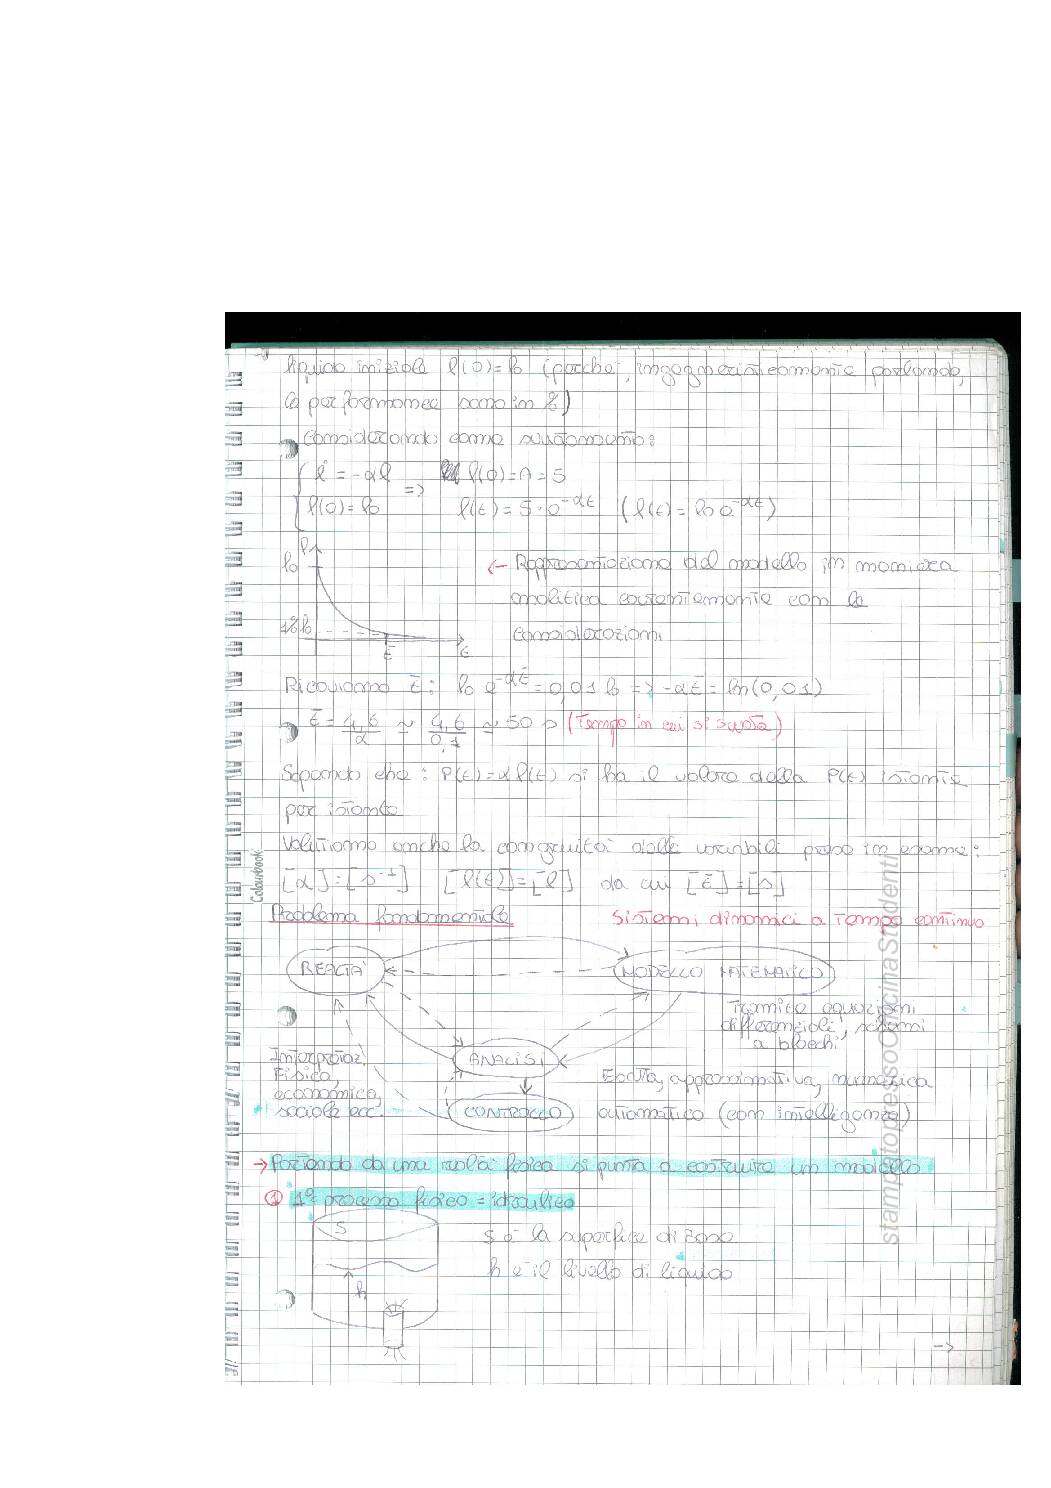 liquido iniziale l(0)=l₀ (perché, ingegneristicamente parlando,
le performance sono in %)
Considerando come svuotamento:
l̇ = -αl => l(0)=A=5
l(0)=l₀ l(t)=5·e^-αt (l(t)=l₀e^-αt)
l
l₀
1%l₀
t̄ t
← Rappresentazione del modello in maniera
analitica coerentemente con le
considerazioni
Ricaviamo t̄: l₀ e^-αt̄ = 0,01 l₀ => -αt̄ = ln(0,01)
t̄ = 4,6/α ≃ 4,6/0,1 ≃ 50 s (Tempo in cui si svuota)
Sapendo che: P(t)=αl(t) si ha il valore della P(t) istante
per istante
Valutiamo anche la congruità delle variabili prese in esame:
[α]=[s⁻¹] [l(t)]=[l] da cui [t̄]=[s]
Problema fondamentale Sistemi dinamici a tempo continuo
REALTA' MODELLO MATEMATICO
Tramite equazioni
differenziali, schemi
a blocchi
ANALISI
Interpretaz.
Fisica,
economica,
sociale ecc.
Esatta, approssimativa, numerica
CONTROLLO automatico (con intelligenza)
→ Partendo da una realtà fisica si punta a costruire un modello
① 1° processo fisico = idraulico
S
S è la superficie di base
h è il livello di liquido
h
→
Colourbook
stampatopressoOfficinaStudenti